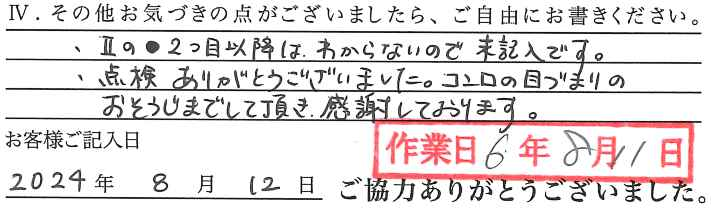 Ⅳ．その他お気づきの点がございましたら、ご自由にお書きください。
、Ⅱの●2つ目以降は、わからないので 未記入です。
、点検 ありがとうございました。コンロの目づまりの
おそうじまでして頂き、感謝しております。
お客様ご記入日
作業日 6年 8月11日
2024年 8月 12日 ご協力ありがとうございました。